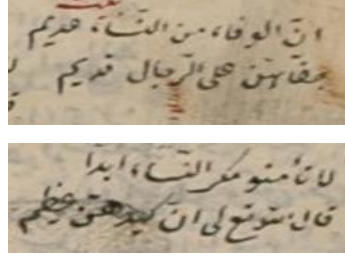 ان الوفاء من النساء عديم
جفائهن على الرجال قديم
لا تأمنو مكر النساء ابدا
قال متوقع لى ان كيدهن عظيم